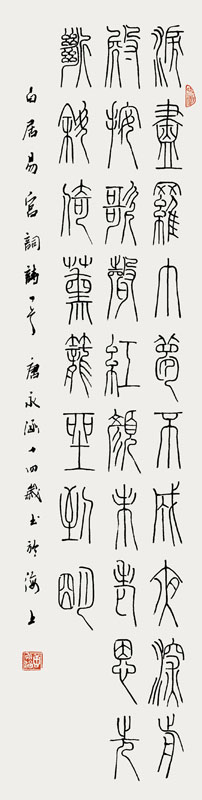 淚盡羅巾夢不成夜深前
殿按歌聲紅顏未老恩先
斷斜倚薰籠坐到明
白居易宮詞詩一首 唐永涵十四歲書於海上